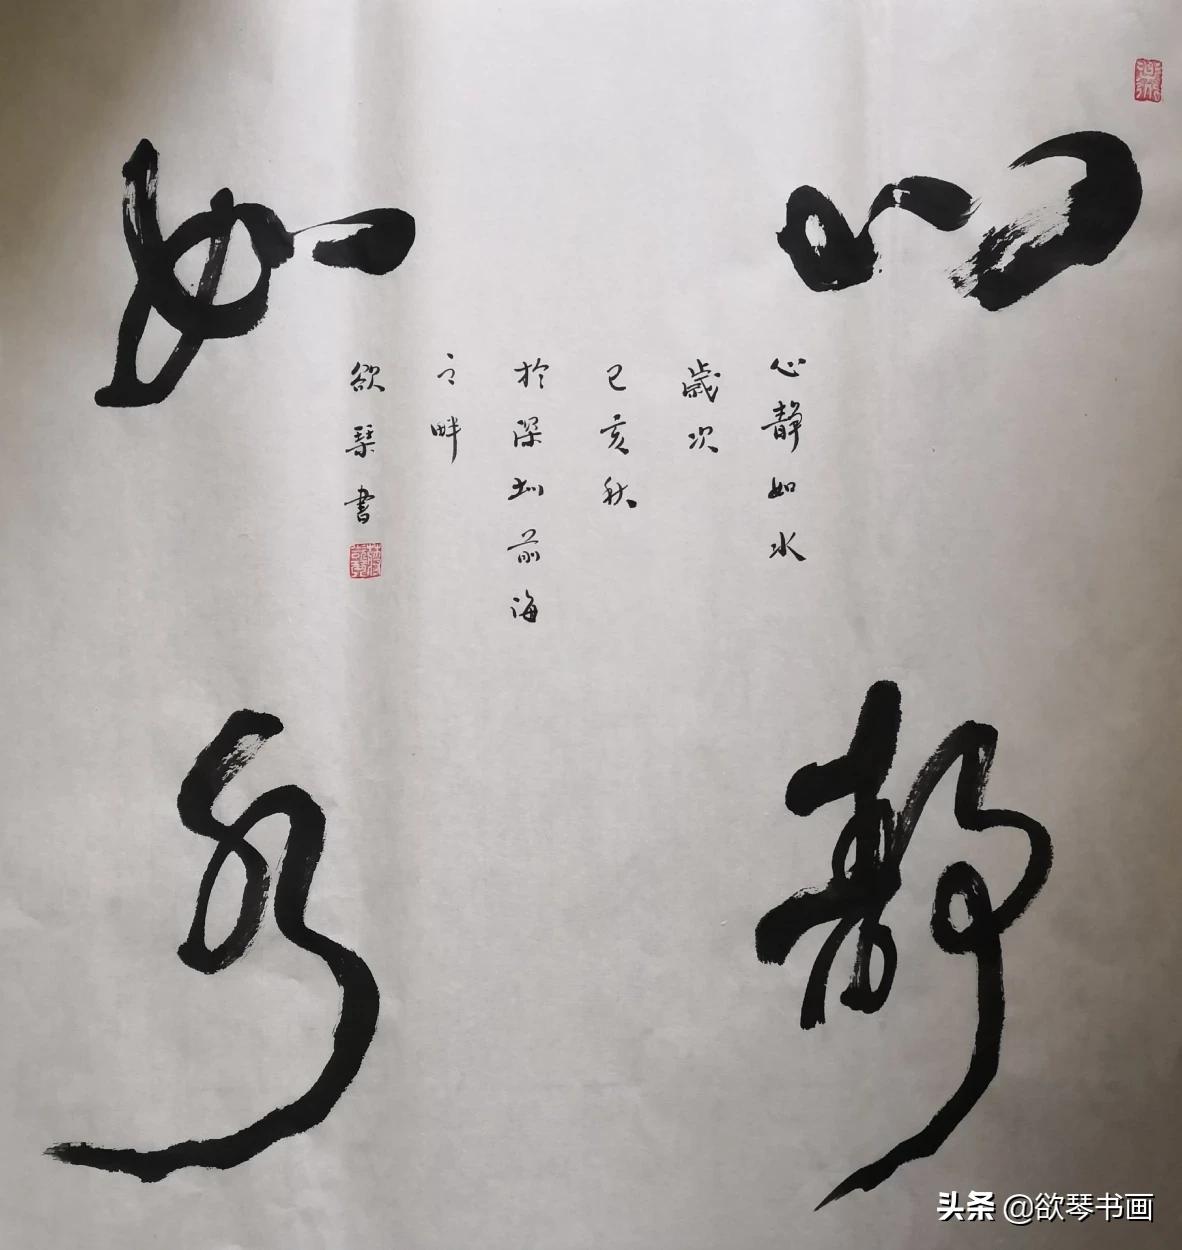 心静
如水
心静如水
歲次
己亥秋
於深圳前海
之畔
欲琹書
头条 @欲琴书画